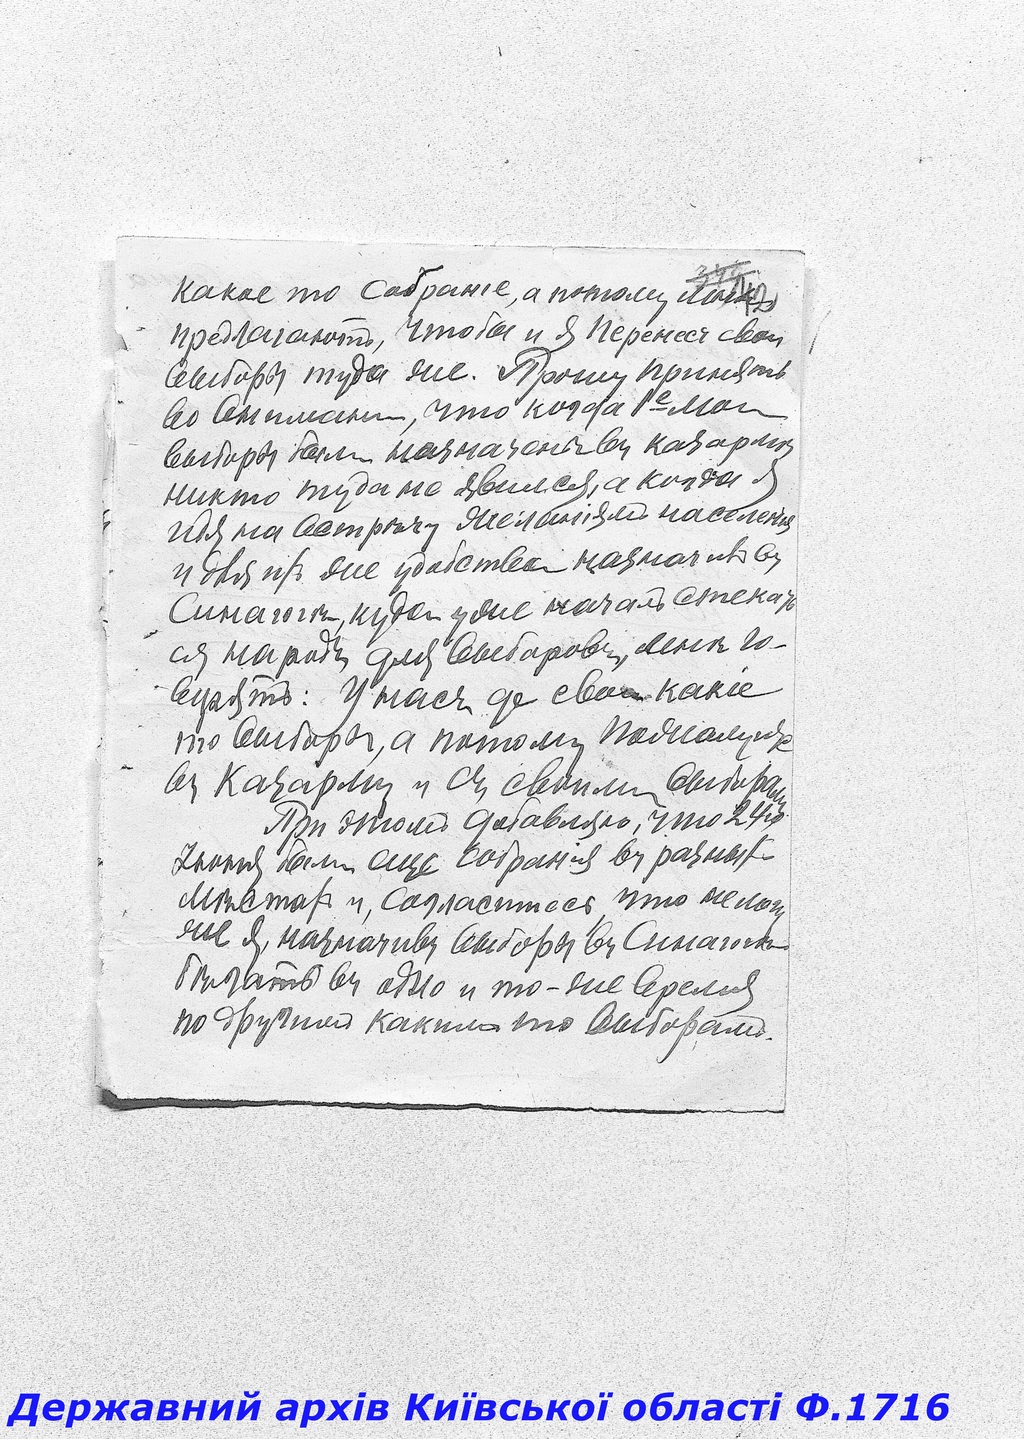 какое то собраніе, а потому мнѣ
предлагаютъ, чтобы и я перенесъ свои
выборы туда же. Прошу принять
во вниманіе, что когда 1е мои
выборы были назначены въ казарму
никто туда не явился, а когда я
идя на встрѣчу желаніямъ населенія
и для ихъ же удобства назначилъ въ
Синагогѣ, куда уже началъ стекать
ся народъ для выборовъ, мнѣ го-
ворятъ: У насъ де свои какіе
то выборы, а потому пожалуйте
въ казарму и съ своими выборами
При этомъ добавляю, что 24го
Іюня были еще собранія въ разныхъ
мѣстахъ и, согласитесь, что не могу
же я, назначивъ выборы въ Синагогѣ
бѣгать въ одно и то-же время
по другимъ какимъ то выборамъ.
Державний архів Київської області Ф.1716